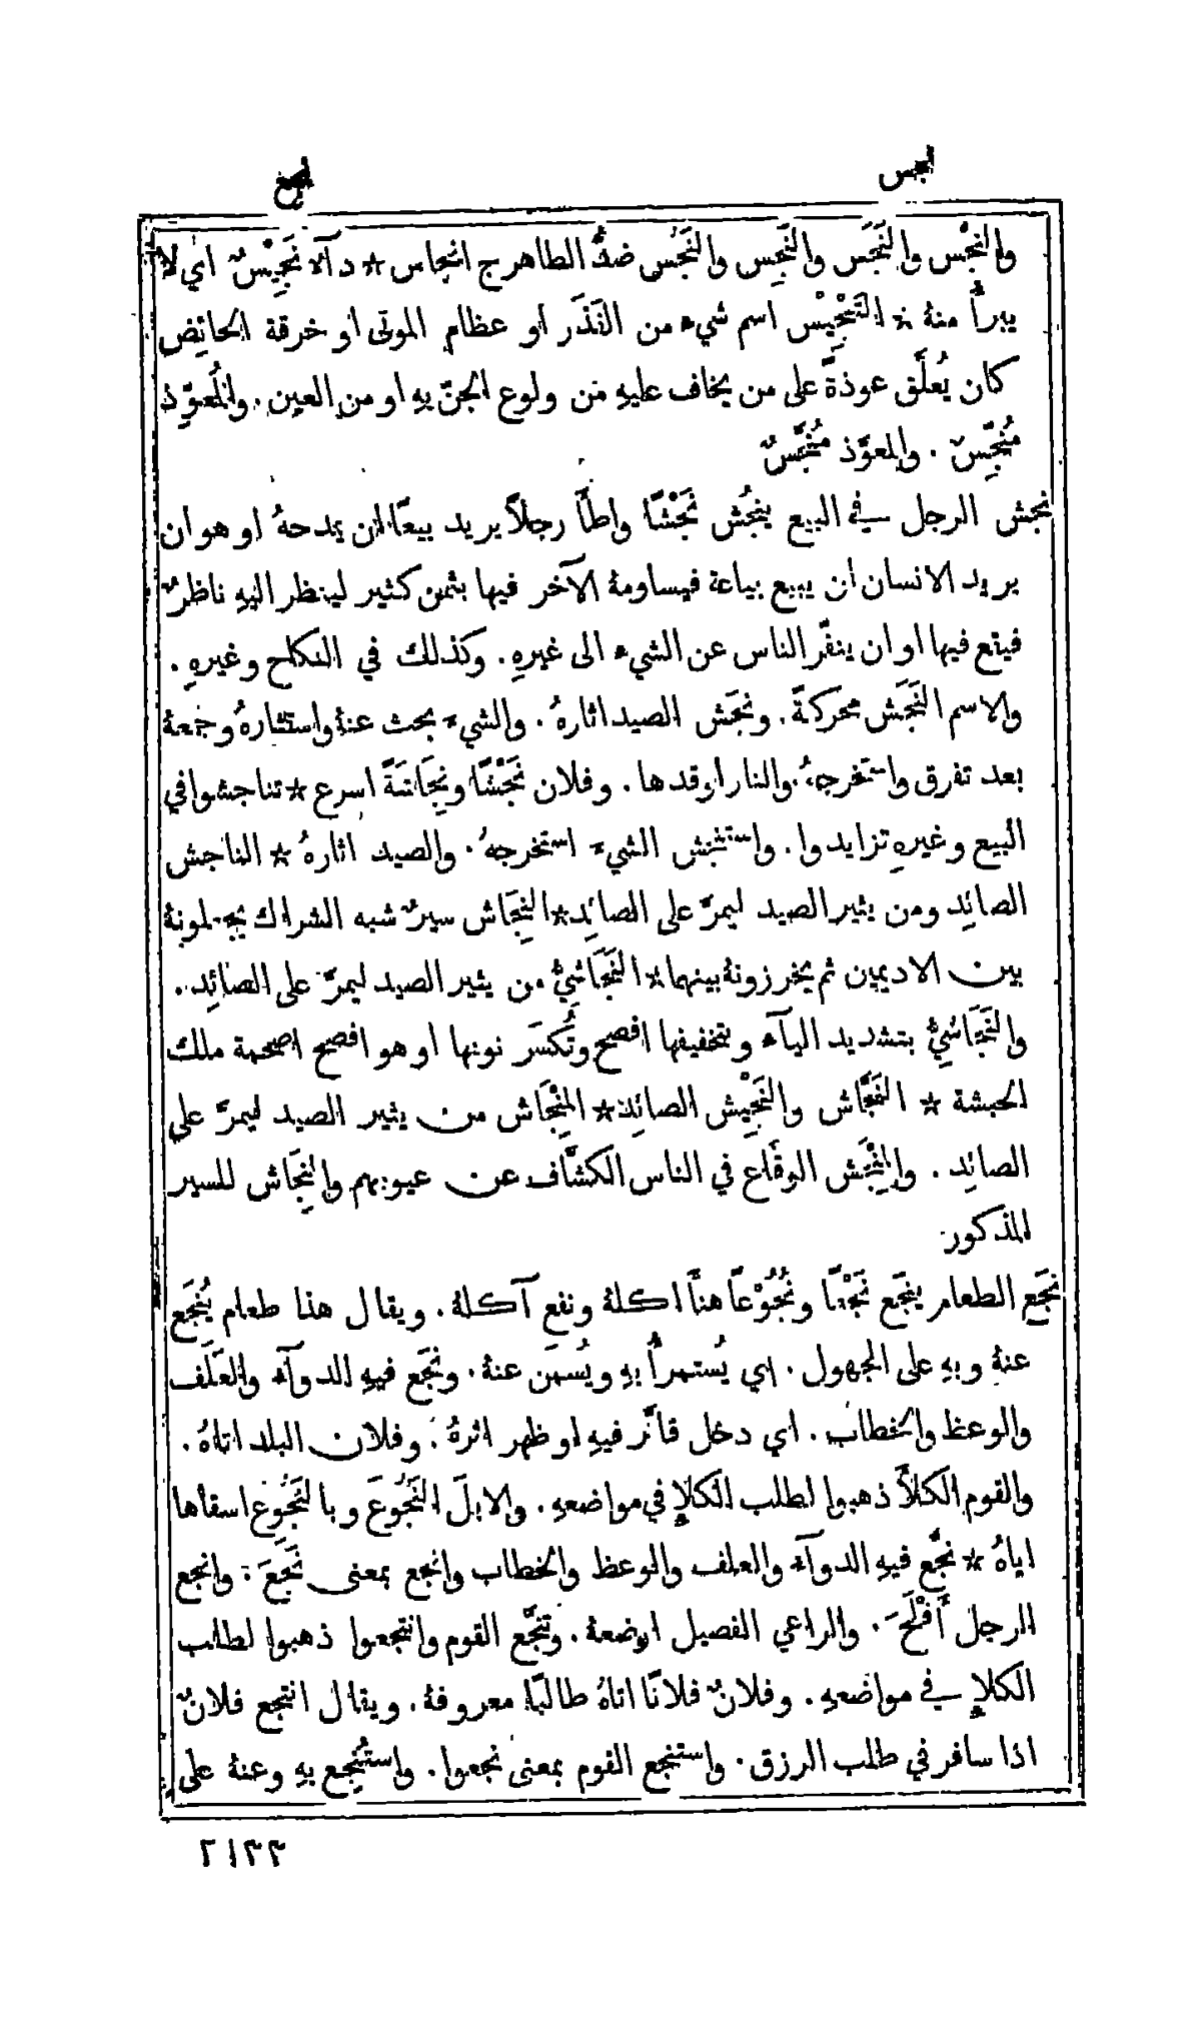 نجس
نجع
والنِجْس والنَجَس والنَجِس والنَجُس ضدُّ الطاهر ج انجاس * دآء نَجِيْسٌ اي لا
يبرأُ منهُ * التَنْجِيْس اسم شيء من القَذَر او عظام الموتى او خرقة الحائِض
كان يُعلَّق عوذةً على من يخاف عليهِ من ولوع الجنّ بهِ او من العين. والمُعوِّذ
مُنَجِّسٌ. والمعوَّذ مُنَجَّسٌ
نجش الرجل في البيع ينجُش نَجْشًا واطأَ رجلاً يريد بيعًا ان يمدحهُ او هو ان
يريد الانسان ان يبيع بياعة فيساومهُ الآخر فيها بثمن كثير لينظر اليهِ ناظرٌ
فيقع فيها او ان ينفّر الناس عن الشيء الى غيرهِ. وكذلك في النكاح وغيرهِ.
والاسم النَجَش محركةً. ونجَش الصيد اثارهُ. والشيء بحث عنهُ واستثارهُ وجمعهُ
بعد تفرق واستخرجهُ. والنار اوقدها. وفلان نَجْشًا ونِجَاشَةً اسرع * تناجشوا في
البيع وغيرهِ تزايدوا. واستنجش الشيء استخرجهُ. والصيد اثارهُ * الناجش
الصائِد ومن يثير الصيد ليمرّ على الصائِد * النِجَاش سيرٌ شبه الشراك يجعلونهُ
بين الاديمين ثم يخرزونهُ بينهما * النَجَاشِيُّ من يثير الصيد ليمرّ على الصائِد.
والنَجَاشِيُّ بتشديد اليآء وبتخفيفها افصح وتُكسَر نونها او هو افصح اصحمة ملك
الحبشة * النَجَّاش والنَجِيْش الصائِد * المِنْجَاش من يثير الصيد ليمرّ على
الصائِد. والمِنْجَش الوقَّاع في الناس الكشَّاف عن عيوبهم والمِنجَاش للسير
المذكور
نجَع الطعام ينجَع نَجْعًا ونُجُوْعًا هنأَ اكلهُ ونفع آكلهُ. ويقال هذا طعام يُنجَع
عنهُ وبهِ على المجهول. اي يُستمرأُ بهِ ويُسمَن عنهُ. ونجَع فيهِ الدوآء والعَلَف
والوعظ والخطاب. اي دخل فأثَّر فيهِ او ظهر اثرهُ. وفلان البلد اتاهُ.
والقوم الكلأَ ذهبوا لطلب الكلإِ في مواضعهِ. والابلَ النَجُوعَ وبالنَجُوع اسقاها
اياهُ * نجَّع فيهِ الدوآء والعلف والوعظ والخطاب وانجع بمعنى نَجَعَ. وانجع
الرجل أَفْلَحَ. والراعي الفصيل ارضعهُ. وتنجَّع القوم وانتجعوا ذهبوا لطلب
الكلإِ في مواضعهِ. وفلانٌ فلانًا اتاهُ طالبًا معروفهُ. ويقال انتجع فلانٌ
اذا سافر في طلب الرزق. واستنجع القوم بمعنى نجعوا. واستُنجِع بهِ وعنهُ على
٢١٣٣